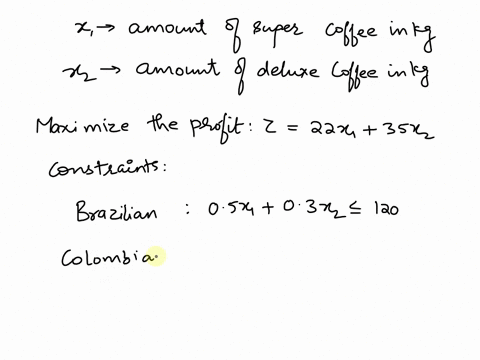 x₁ → amount of super coffee in kg
x₂ → amount of deluxe Coffee in kg
Maximize the profit: Z = 22x₁ + 35x₂
Constraints:
Brazilian : 0.5x₁ + 0.3x₂ ≤ 120
Colombia